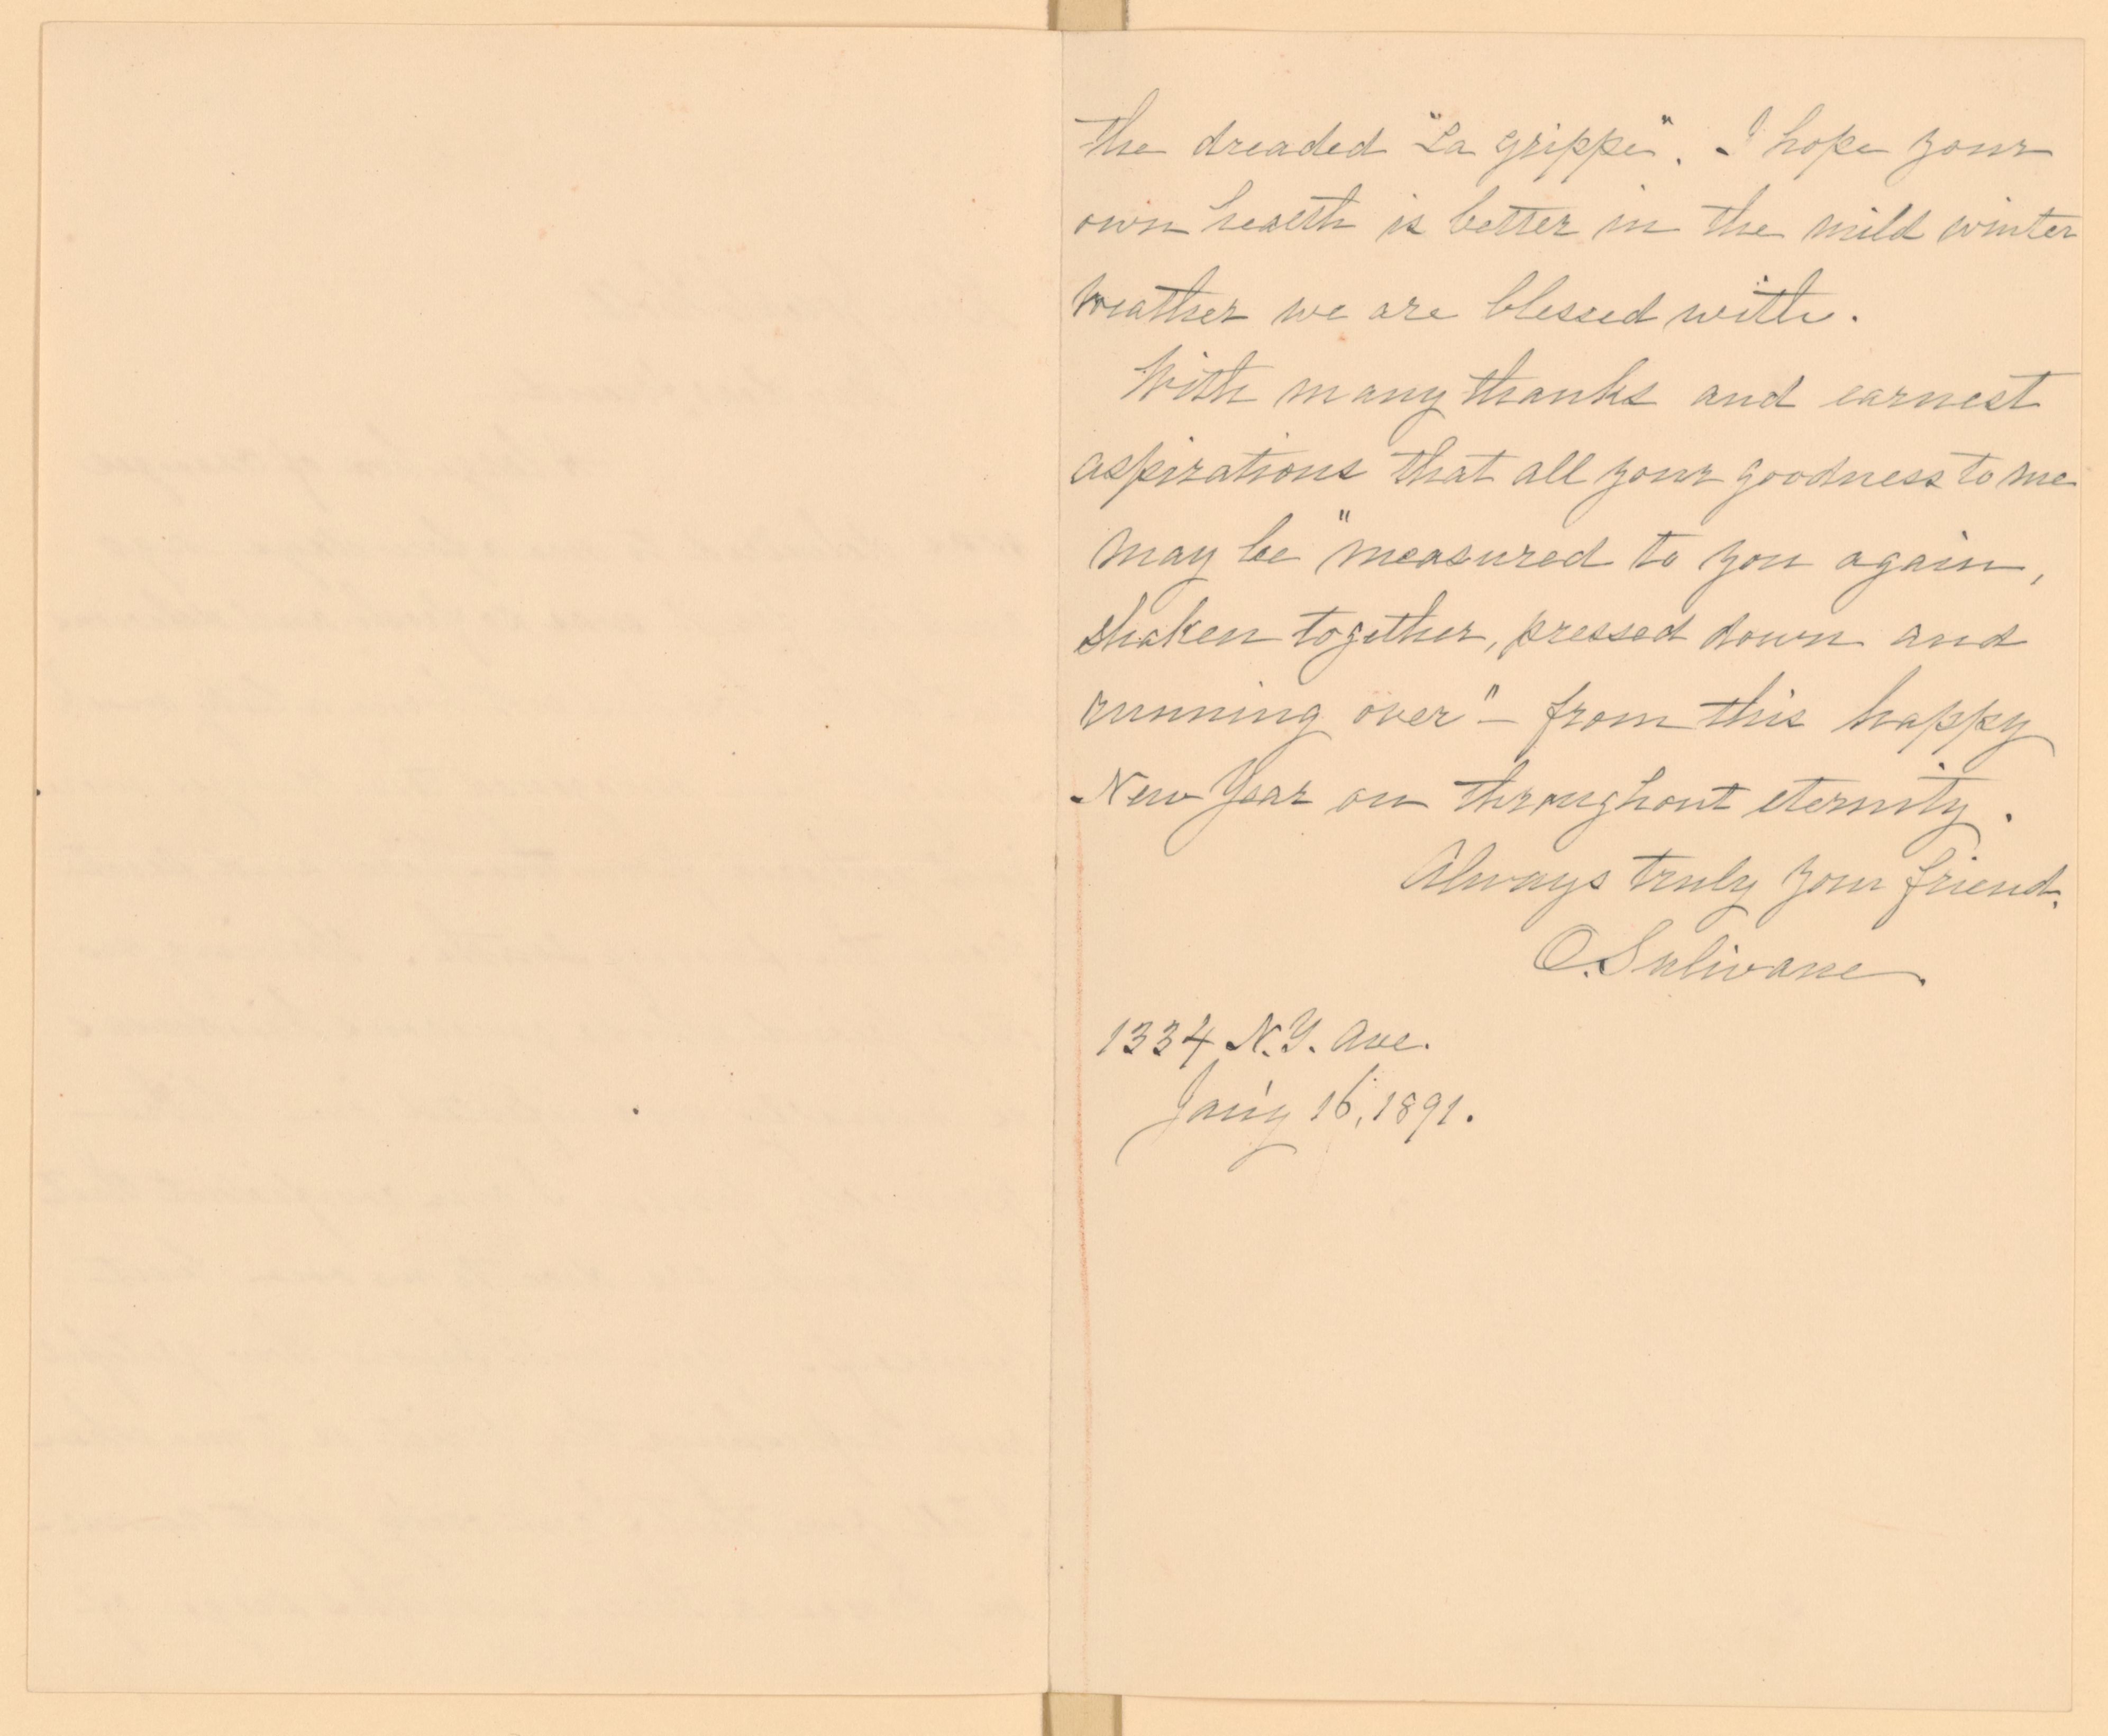 the dreaded "La grippe". I hope your
own health is better in the mild winter
weather we are blessed with.
With many thanks and earnest
aspirations that all your goodness to me
may be "measured to you again,
shaken together, pressed down and
running over" – from this happy
New Year on throughout eternity.
Always truly your friend,
O. Sulivane.
1334 N.Y. Ave.
Jan'y 16, 1891.